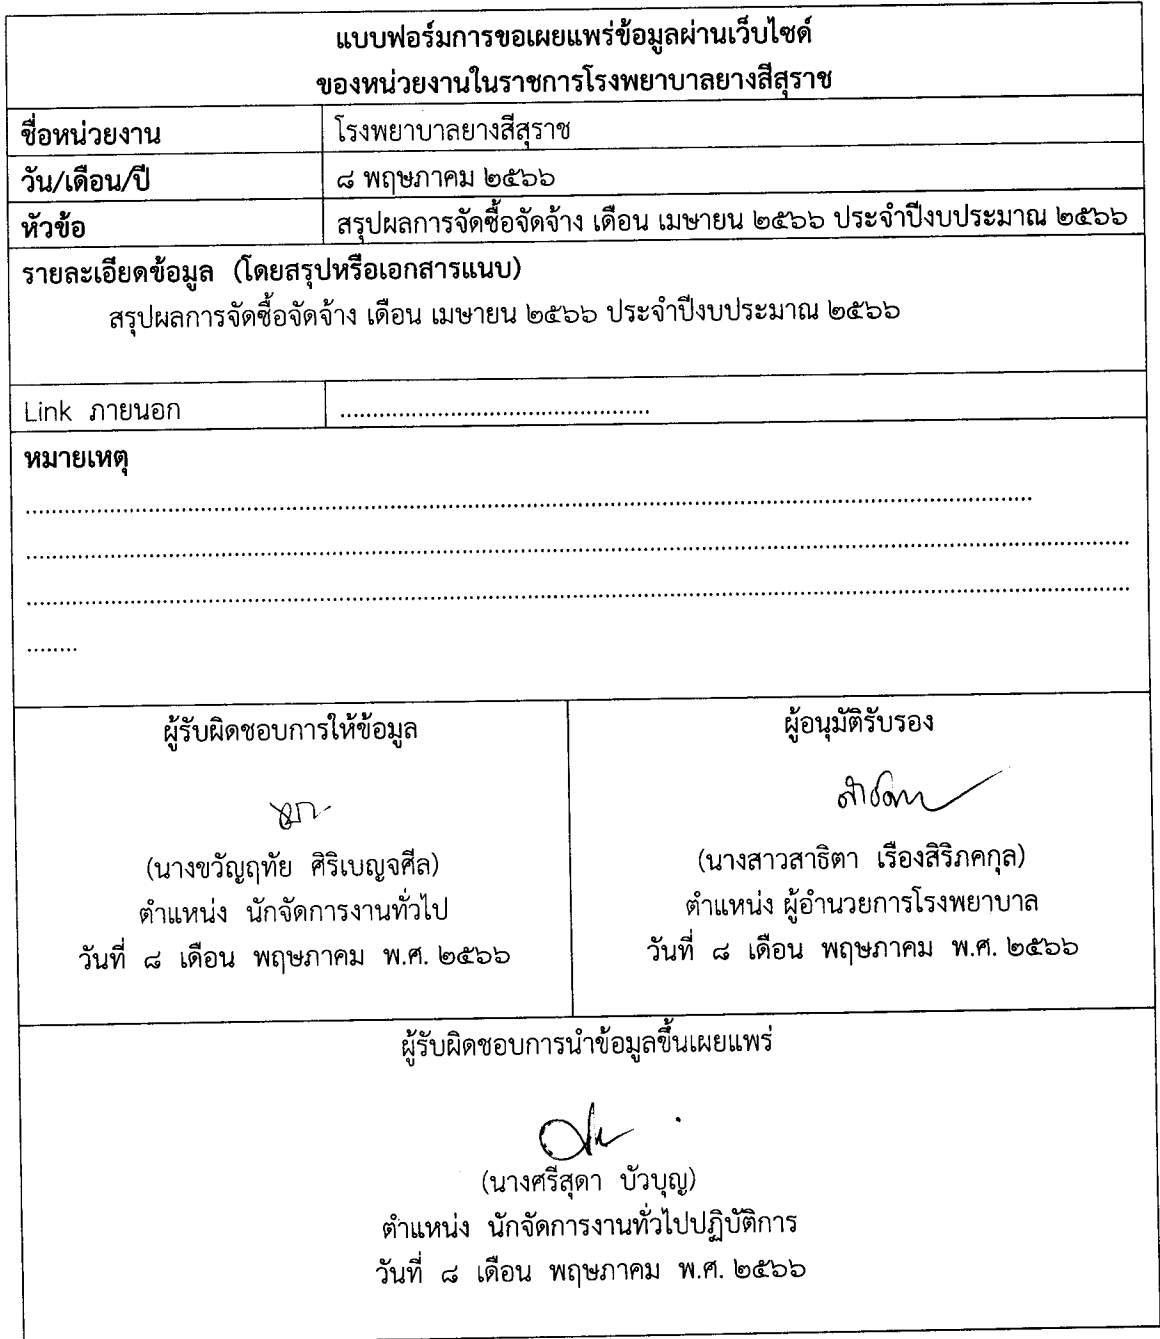 แบบฟอร์มการขอเผยแพร่ข้อมูลผ่านเว็บไซด์
ของหน่วยงานในราชการโรงพยาบาลยางสีสุราช
ชื่อหน่วยงาน โรงพยาบาลยางสีสุราช
วัน/เดือน/ปี ๘ พฤษภาคม ๒๕๖๖
หัวข้อ สรุปผลการจัดซื้อจัดจ้าง เดือน เมษายน ๒๕๖๖ ประจำปีงบประมาณ ๒๕๖๖
รายละเอียดข้อมูล (โดยสรุปหรือเอกสารแนบ)
สรุปผลการจัดซื้อจัดจ้าง เดือน เมษายน ๒๕๖๖ ประจำปีงบประมาณ ๒๕๖๖
Link ภายนอก ................................................
หมายเหตุ
ผู้รับผิดชอบการให้ข้อมูล
(นางขวัญฤทัย ศิริเบญจศีล)
ตำแหน่ง นักจัดการงานทั่วไป
วันที่ ๘ เดือน พฤษภาคม พ.ศ. ๒๕๖๖
ผู้อนุมัติรับรอง
(นางสาวสาธิตา เรืองสิริภคกุล)
ตำแหน่ง ผู้อำนวยการโรงพยาบาล
วันที่ ๘ เดือน พฤษภาคม พ.ศ. ๒๕๖๖
ผู้รับผิดชอบการนำข้อมูลขึ้นเผยแพร่
(นางศรีสุดา บัวบุญ)
ตำแหน่ง นักจัดการงานทั่วไปปฏิบัติการ
วันที่ ๘ เดือน พฤษภาคม พ.ศ. ๒๕๖๖